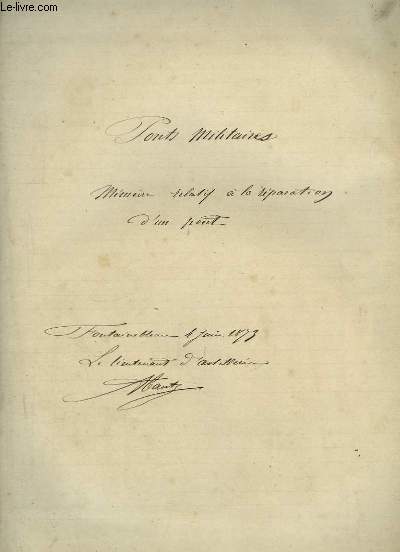 Le-Livre.com
Ponts Militaires
Mémoire relatif à la réparation
d'un pont
Fontainebleau 4 Juin 1873
Le lieutenant d'artillerie